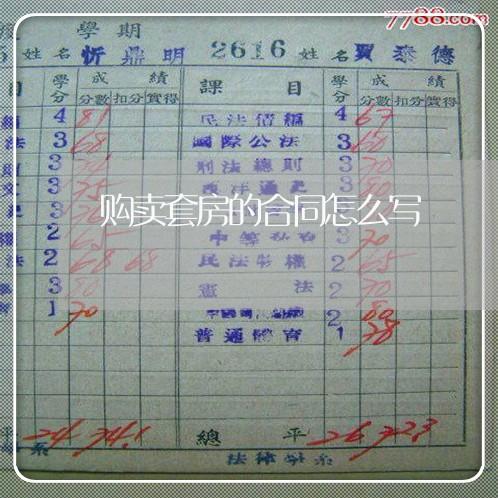 7788.com
學期
姓名 忻鼎明 2616 姓名 賈泰德
目 學分 成績 課目 學分 成績
分數 扣分 實得 分數 扣分 實得
4 81 民法債編 4 67
法 3 68 國際公法 3 60
3 刑法總則 3 70
3 75 西洋通史 3 80
购卖套房的合同怎么写
2 65 3 70
法 2 68 68 民法物權 2 65
3 80 憲法 2 70
1 70 2 80
普通體育 1 78
平 24 74.1 總平 26 72.3
系 法律學系